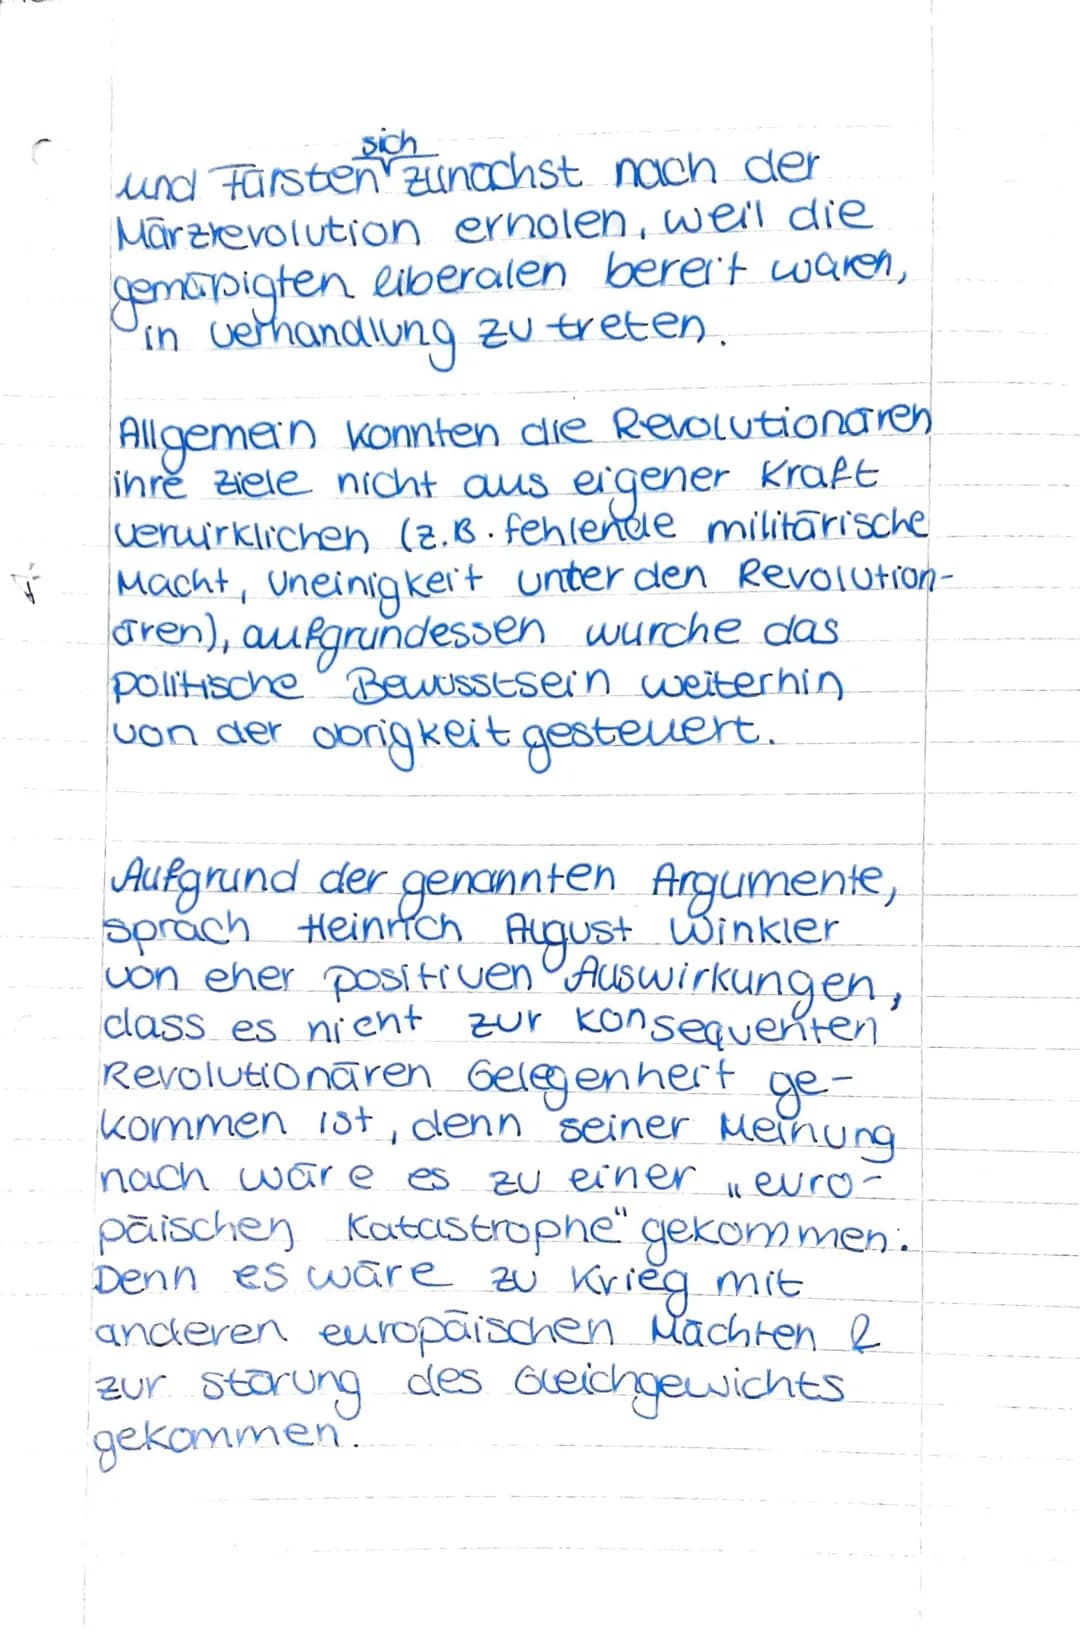 sich
und Fürsten zunächst nach der
Märzrevolution erholen, weil die
gemäßigten liberalen bereit waren,
in verhandlung zu treten.
Allgemein konnten die Revolutionären
ihre Ziele nicht aus eigener Kraft
verwirklichen (z.B. fehlende militärische
Macht, Uneinigkeit unter den Revolution-
ären), aufgrundessen wurche das
politische Bewusstsein weiterhin
von der obrigkeit gesteuert.
Aufgrund der genannten Argumente,
sprach Heinrich August Winkler
von eher positiven Auswirkungen,
dass es nicht zur konsequenten
Revolutionären Gelegenheit ge-
kommen ist, denn seiner Meinung
nach wäre es zu einer „euro-
päischen Katastrophe" gekommen.
Denn es wäre zu Krieg mit
anderen europäischen Mächten &
zur störung des Gleichgewichts
gekommen.